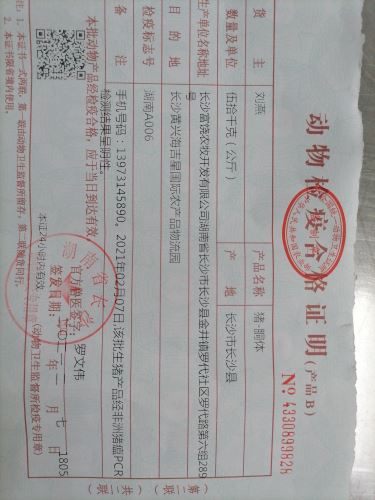 动物检疫合格证明(产品B)
No. 4330699826
货 主 刘燕 产品名称 猪,胴体
数量及单位 伍拾千克(公斤) 产 地 长沙市长沙县
生产单位名称地址 长沙富饶农牧开发有限公司湖南省长沙市长沙县金井镇罗代社区罗代路第六组289
号
目 的 地 长沙黄兴海吉星国际农产品物流园
检疫标志号 湖南A006
备 注 手机号码:13973145890。2021年02月07日,该批生猪产品经非洲猪瘟PCR
检测结果呈阴性。
本批动物产品经检疫合格,应于当日到达有效。
官方兽医签字:罗文伟
签发日期:二〇二一年 二月 七日
1805
本证24小时内有效
(动物卫生监督所检疫专用章)
注:1. 本证书一式两联,第一联由动物卫生监督所留存,第二联随货同行。
2. 本证书限省境内使用。
(第二联 共二联)